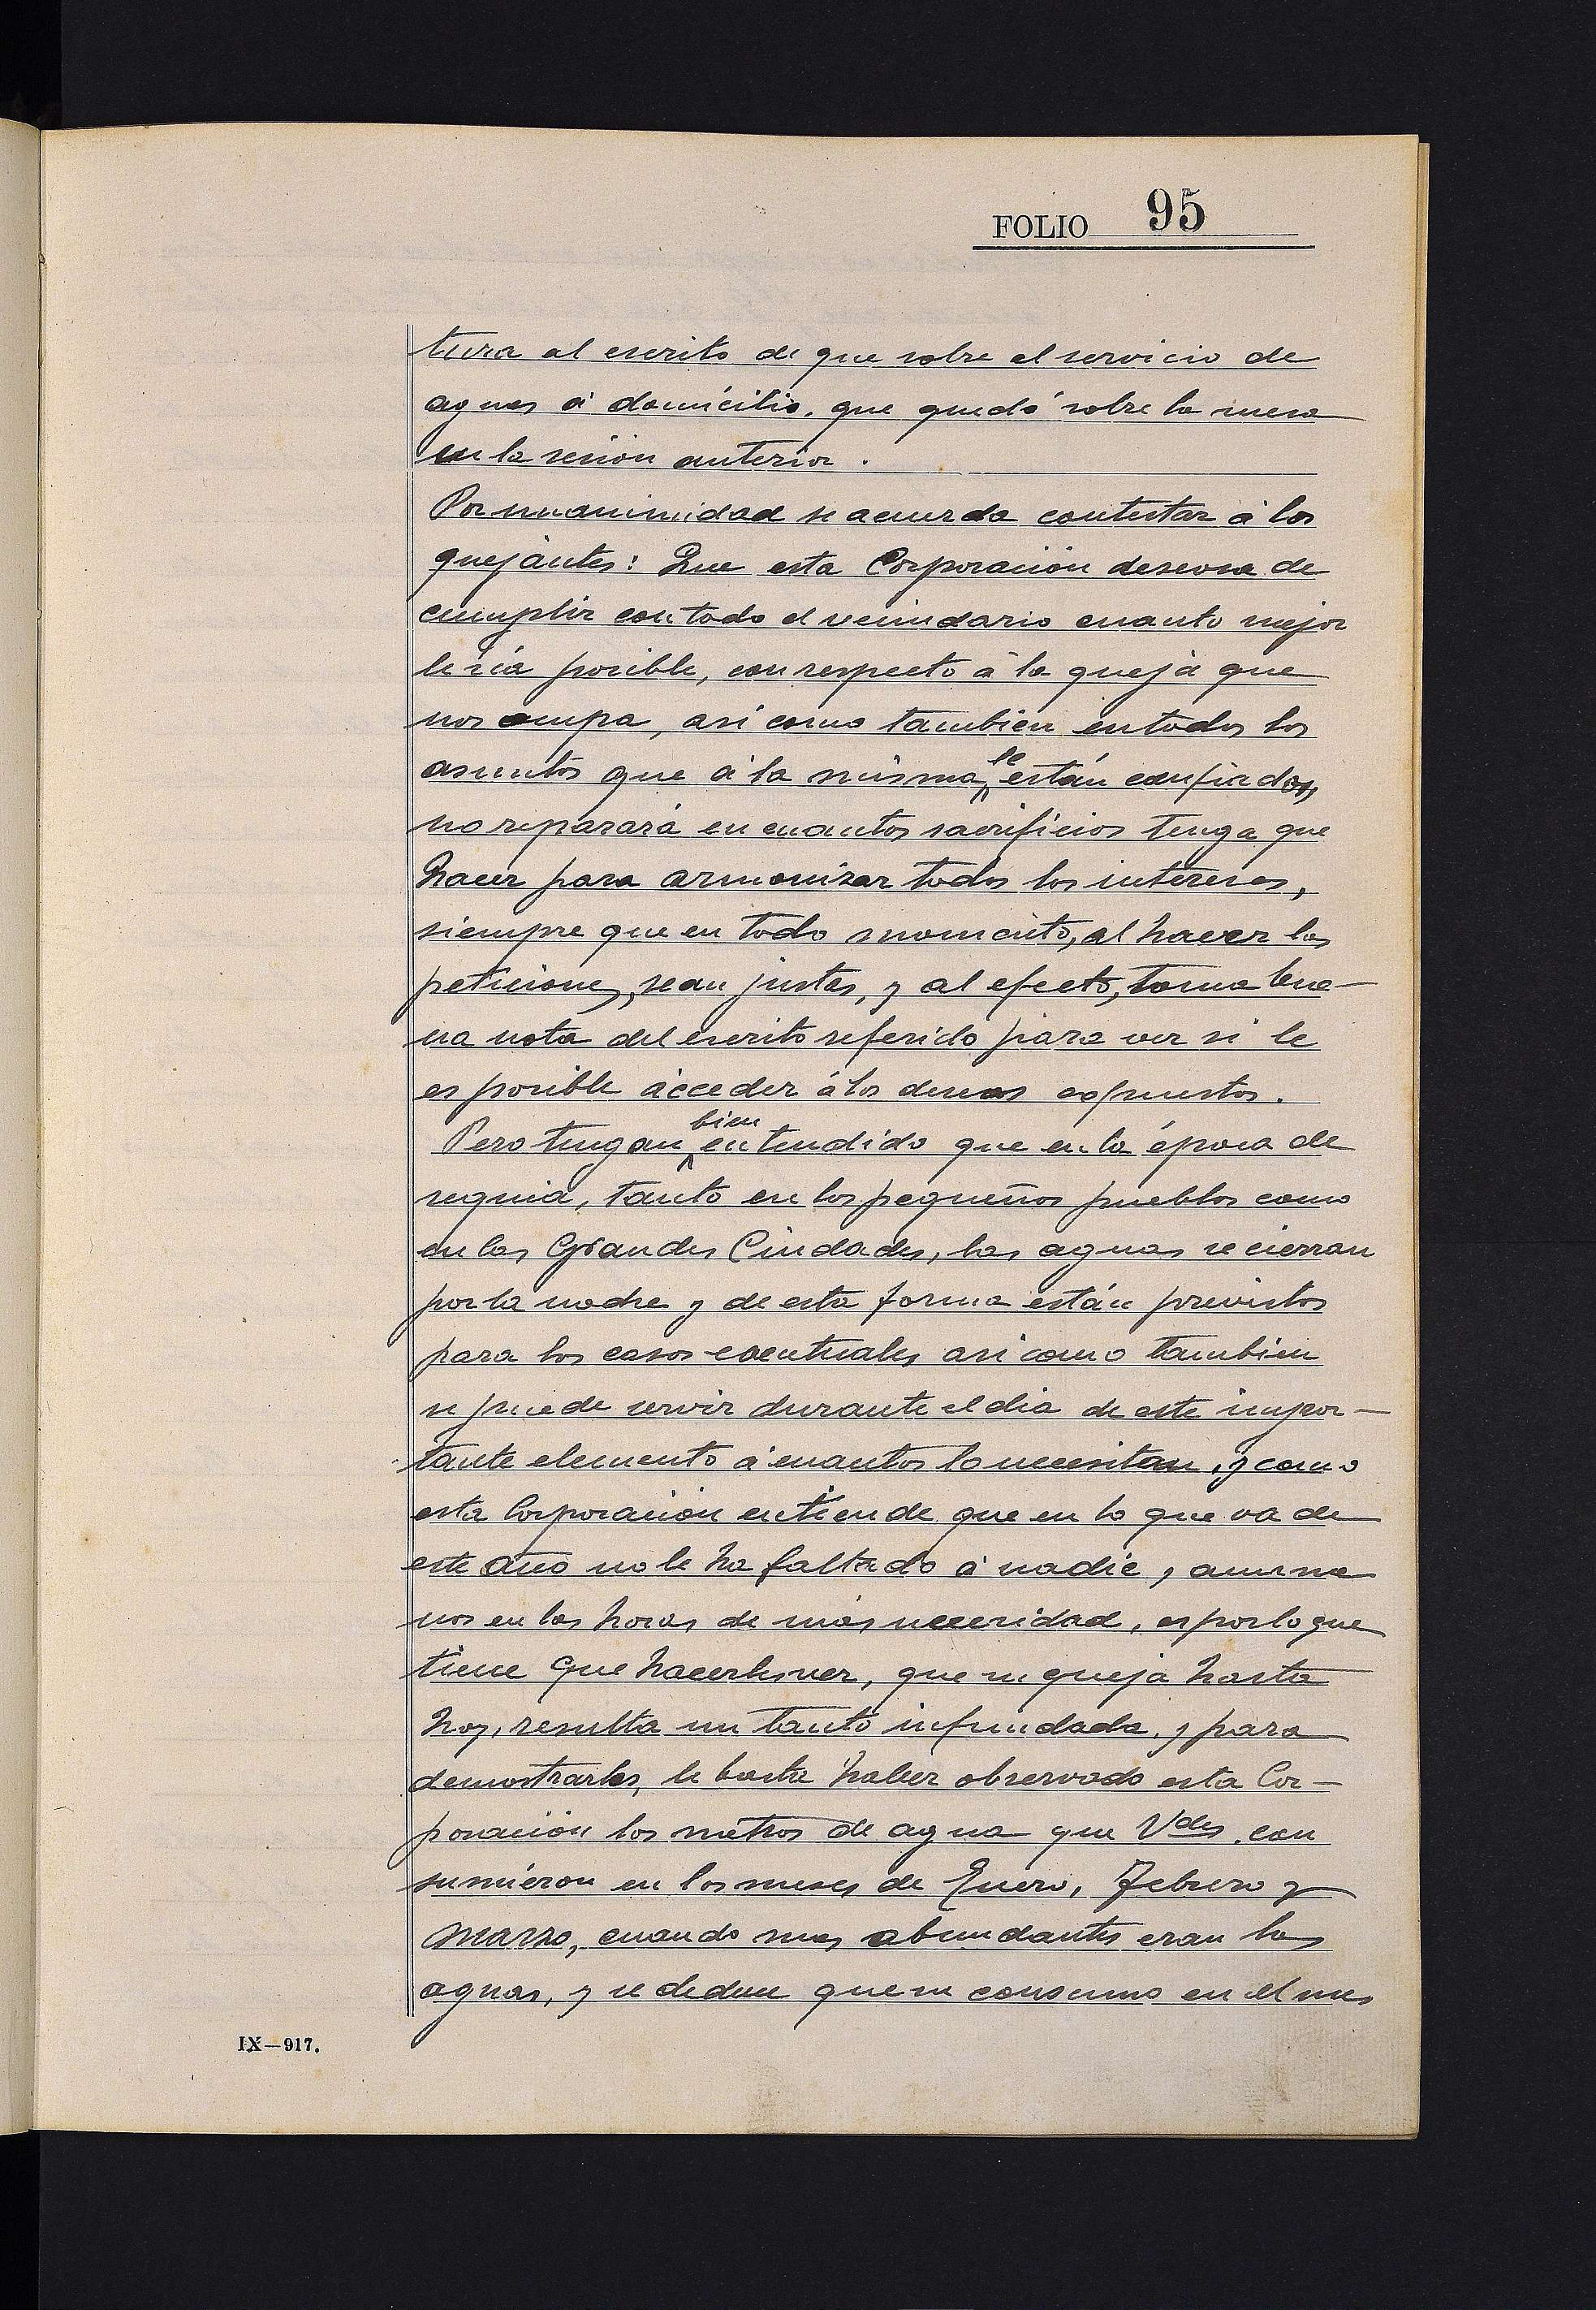 FOLIO 95
tura al escrito de que sobre el servicio de
aguas á domicilio, que quedó sobre la mesa
en la sesión anterior.
Por unanimidad se acuerda contestar á los
quejantes: Que esta Corporación deseosa de
cumplir con todo el vecindario cuanto mejor
le sea posible, con respecto á la queja que
nos ocupa, así como tambien en todos los
asuntos que á la misma le están confiados,
no reparará en cuantos sacrificios tenga que
hacer para armonizar todos los intereses,
siempre que en todo momento, al hacer las
peticiones, sean justas, y al efecto, toma bue-
na nota del escrito referido para ver si le
es posible acceder á los deseos expuestos.
Pero tengan bien entendido que en la época de
sequia, tanto en los pequeños pueblos como
en las Grandes Ciudades, las aguas se cierran
por la noche y de esta forma están previstos
para los casos eventuales asi como tambien
se puede servir durante el dia de este impor-
tante elemento á cuantos lo necesitan, y como
esta Corporación entiende que en lo que va de
este año no le ha faltado á nadie, aume
nos en las horas de más necesidad, es por lo que
tiene que hacerles ver, que su queja hasta
hoy, resulta un tanto infundada, y para
demostrarles, le basta haber observado esta Cor-
poración los metros de agua que Vdes. con
sumieron en los meses de Enero, Febrero y
Marzo, cuando mas abundantes eran las
aguas, y se deduce que su consumo en el mes
IX-917.